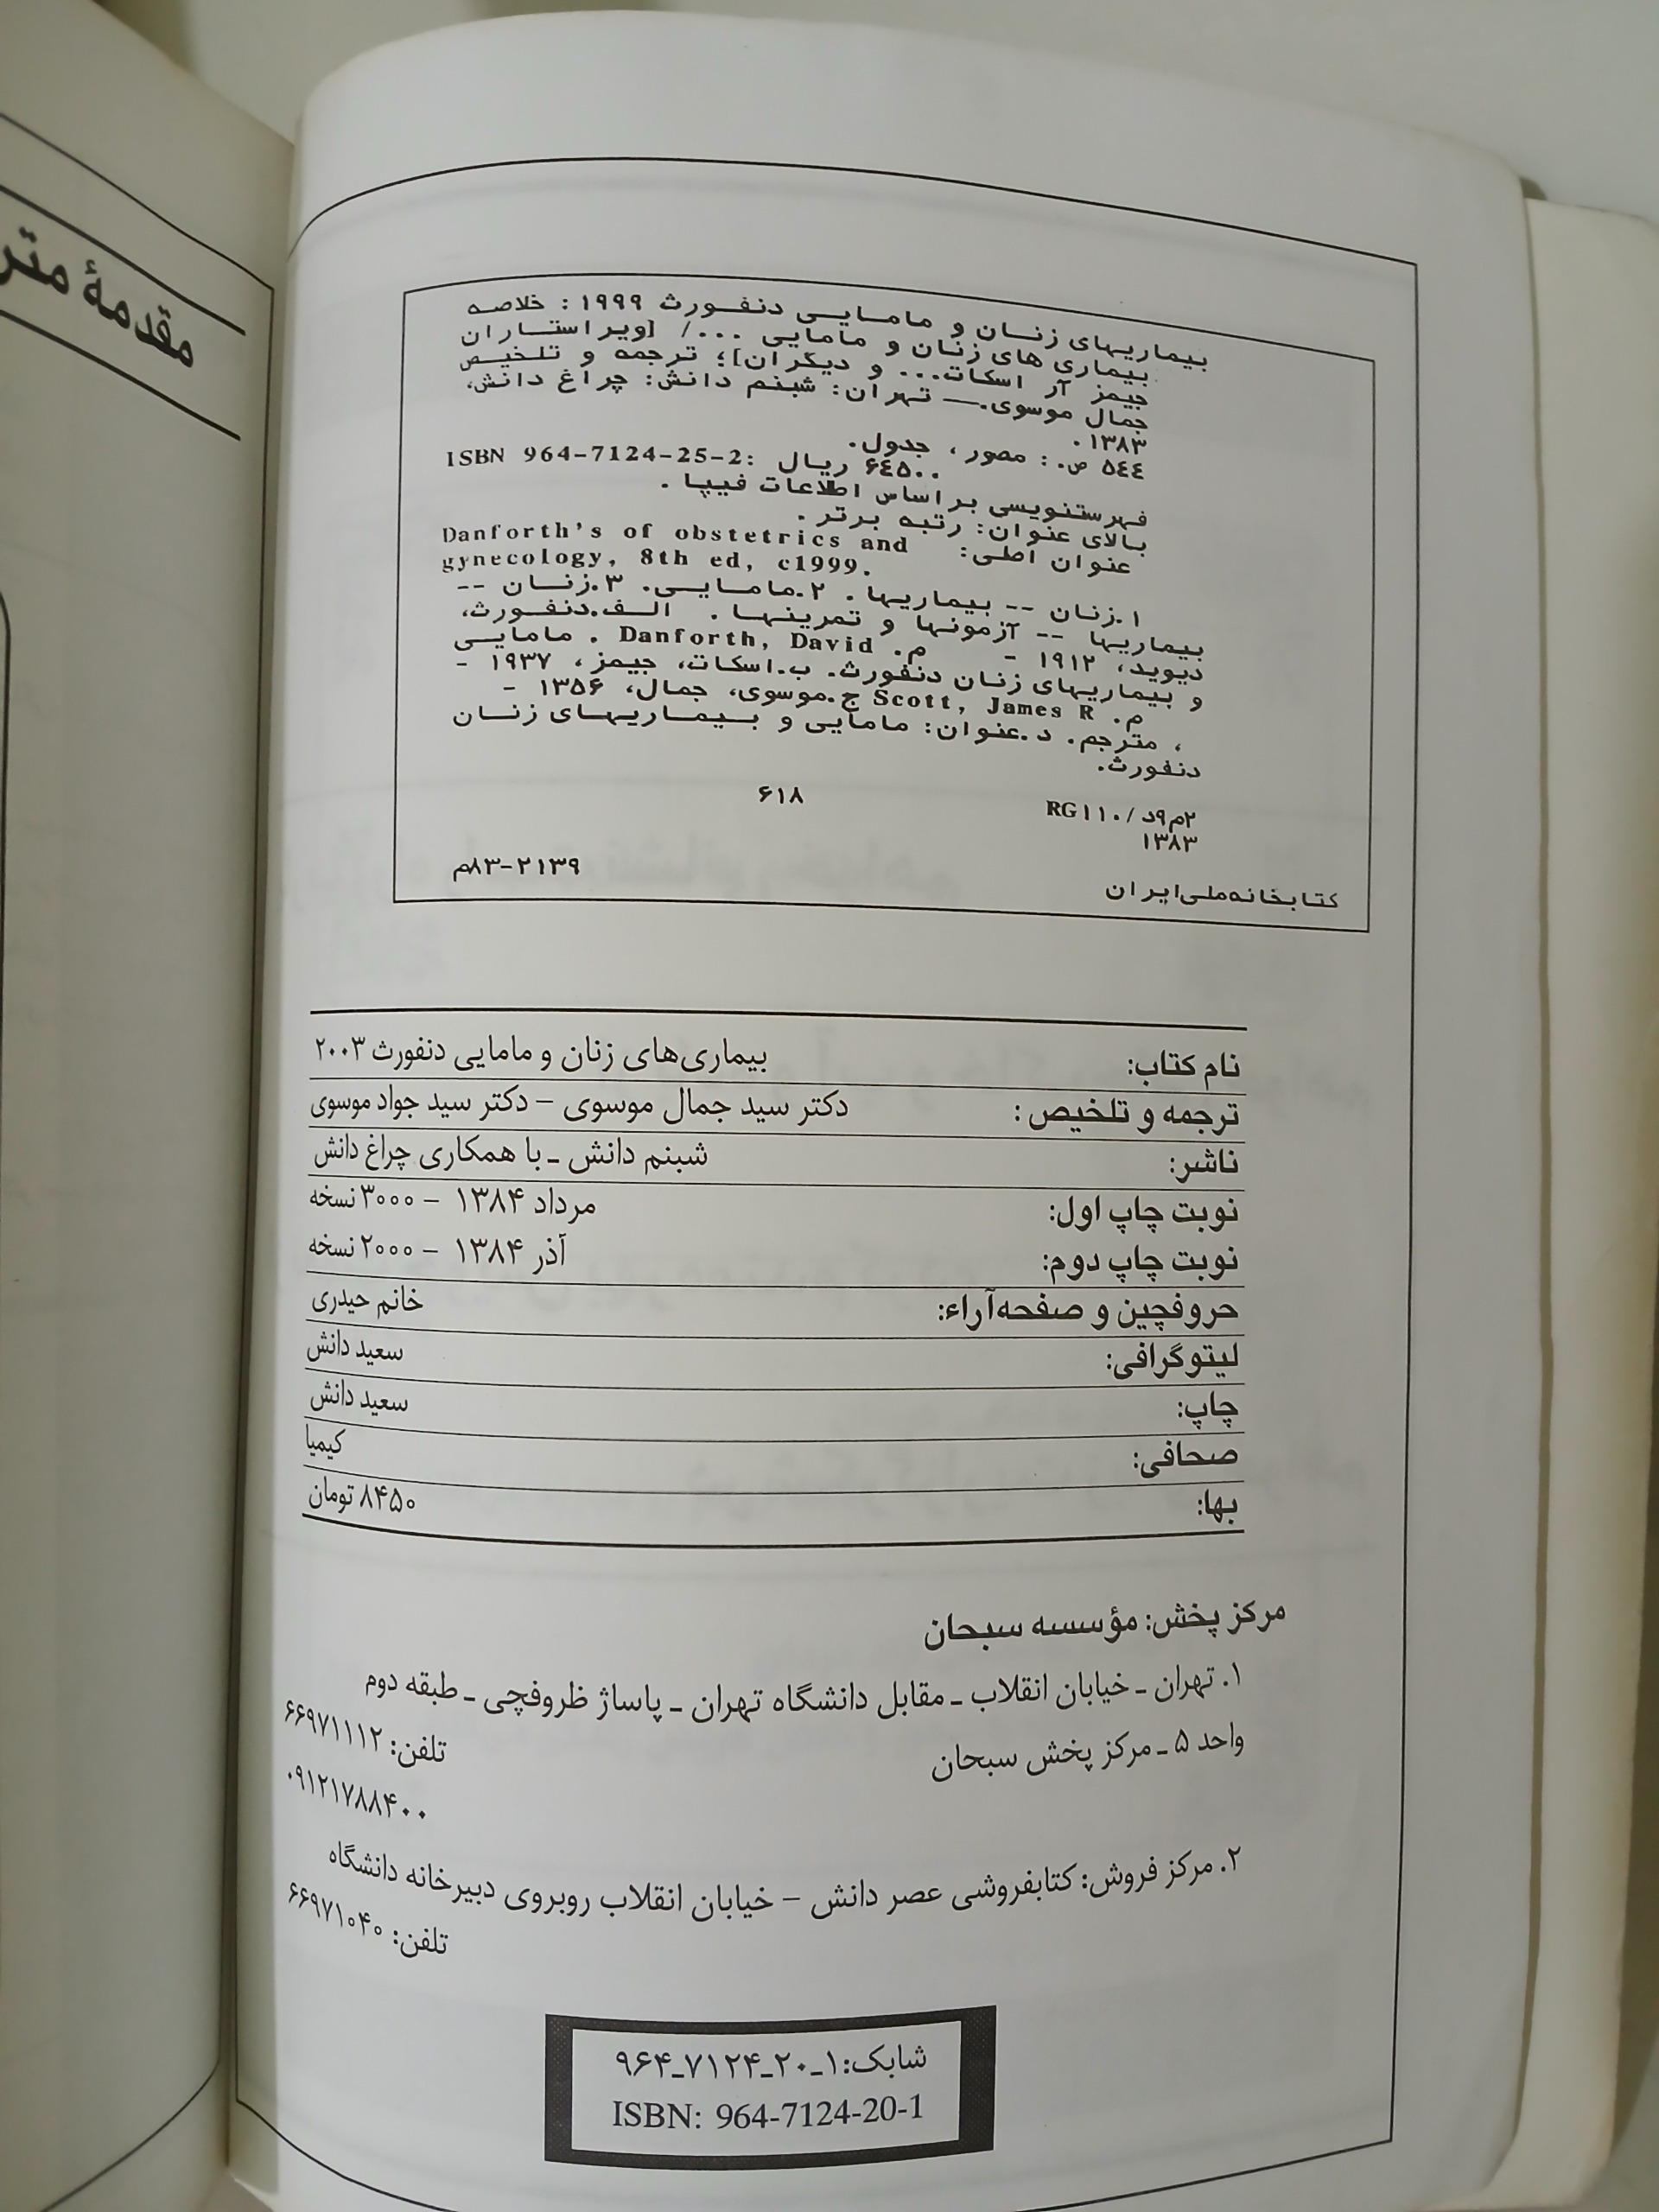 مقدمهٔ متر
بیماریهای زنان و مامایی دنفورث ۱۹۹۹: خلاصه
بیماری های زنان و مامایی .../ [ویراستاران
جیمز آر اسکات... و دیگران]؛ ترجمه و تلخیص
جمال موسوی.— تهران: شبنم دانش: چراغ دانش،
۱۳۸۳.
۵٤٤ ص.: مصور، جدول.
ISBN 964-7124-25-2: ۶٤۵۰۰ ریال
فهرستنویسی براساس اطلاعات فیپا.
بالای عنوان: رتبه برتر.
عنوان اصلی: Danforth's of obstetrics and
gynecology, 8th ed, c1999.
۱.زنان -- بیماریها. ۲.مامایی. ۳.زنان --
بیماریها -- آزمونها و تمرینها. الف.دنفورث،
دیوید، ۱۹۱۲ - م. Danforth, David. مامایی
و بیماریهای زنان دنفورث. ب.اسکات، جیمز، ۱۹۳۷ -
م. Scott, James R ج.موسوی، جمال، ۱۳۵۶ -
، مترجم. د.عنوان: مامایی و بیماریهای زنان
دنفورث.
۲م۹د/ RG۱۱۰ ۶۱۸
۱۳۸۳
کتابخانه‌ملی‌ایران م۸۳-۲۱۳۹
نام کتاب: بیماری‌های زنان و مامایی دنفورث ۲۰۰۳
ترجمه و تلخیص: دکتر سید جمال موسوی – دکتر سید جواد موسوی
ناشر: شبنم دانش ـ با همکاری چراغ دانش
نوبت چاپ اول: مرداد ۱۳۸۴ – ۳۰۰۰ نسخه
نوبت چاپ دوم: آذر ۱۳۸۴ – ۲۰۰۰ نسخه
حروفچین و صفحه‌آراء: خانم حیدری
لیتوگرافی: سعید دانش
چاپ: سعید دانش
صحافی: کیمیا
بها: ۸۴۵۰ تومان
مرکز پخش: مؤسسه سبحان
۱. تهران ـ خیابان انقلاب ـ مقابل دانشگاه تهران ـ پاساژ ظروفچی ـ طبقه دوم
واحد ۵ ـ مرکز پخش سبحان تلفن: ۶۶۹۷۱۱۱۲
۰۹۱۲۱۷۸۸۴۰۰
۲. مرکز فروش: کتابفروشی عصر دانش – خیابان انقلاب روبروی دبیرخانه دانشگاه
تلفن: ۶۶۹۷۱۰۴۰
شابک: ۱ـ۲۰ـ۷۱۲۴ـ۹۶۴
ISBN: 964-7124-20-1